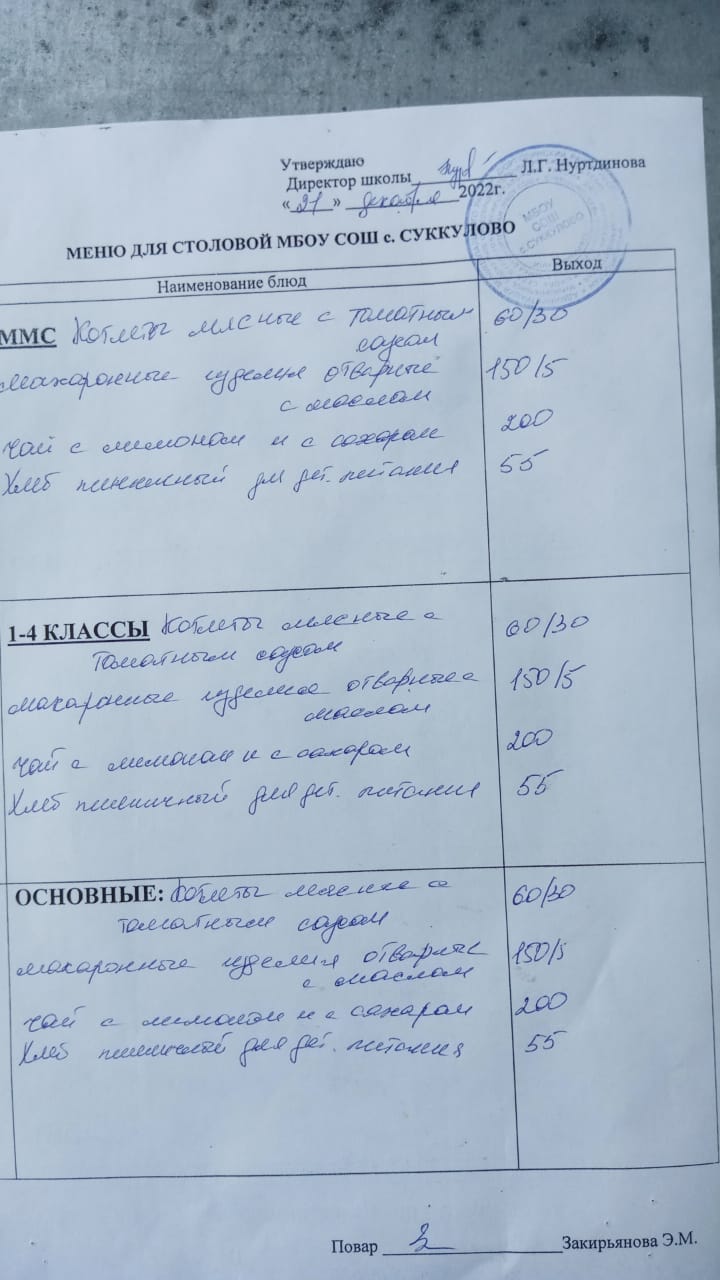 Утверждаю
Директор школы Л.Г. Нуртдинова
«21» декабря 2022г.
МБОУ
СОШ
с.СУККУЛОВО
МЕНЮ ДЛЯ СТОЛОВОЙ МБОУ СОШ с. СУККУЛОВО
Наименование блюд Выход
ММС Котлеты мясные с томатным 60/30
соусом
макаронные изделия отварные 150/5
с маслом
чай с лимоном и с сахаром 200
Хлеб пшеничный для дет. питания 55
1-4 КЛАССЫ Котлеты мясные с 60/30
томатным соусом
макаронные изделия отварные с 150/5
маслом
чай с лимоном и с сахаром 200
Хлеб пшеничный для дет. питания 55
ОСНОВНЫЕ: Котлеты мясные с 60/30
томатным соусом
макаронные изделия отварные 150/5
с маслом
чай с лимоном и с сахаром 200
Хлеб пшеничной для дет. питания 55
Повар Закирьянова Э.М.